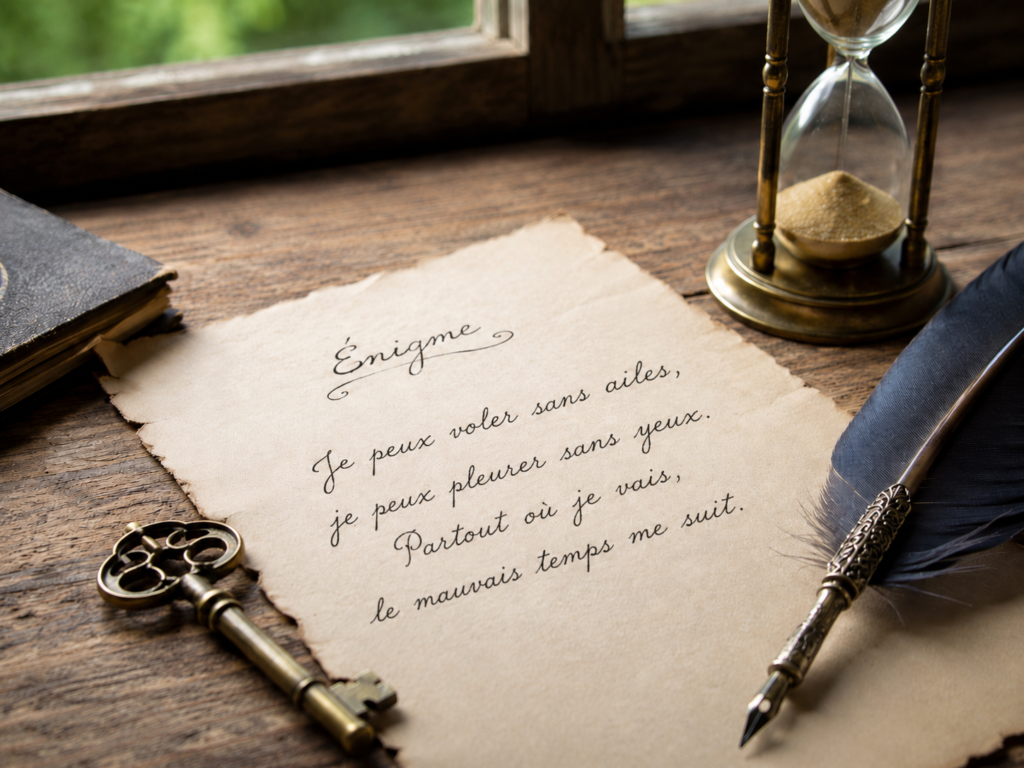 Énigme
Je peux voler sans ailes,
je peux pleurer sans yeux.
Partout où je vais,
le mauvais temps me suit.